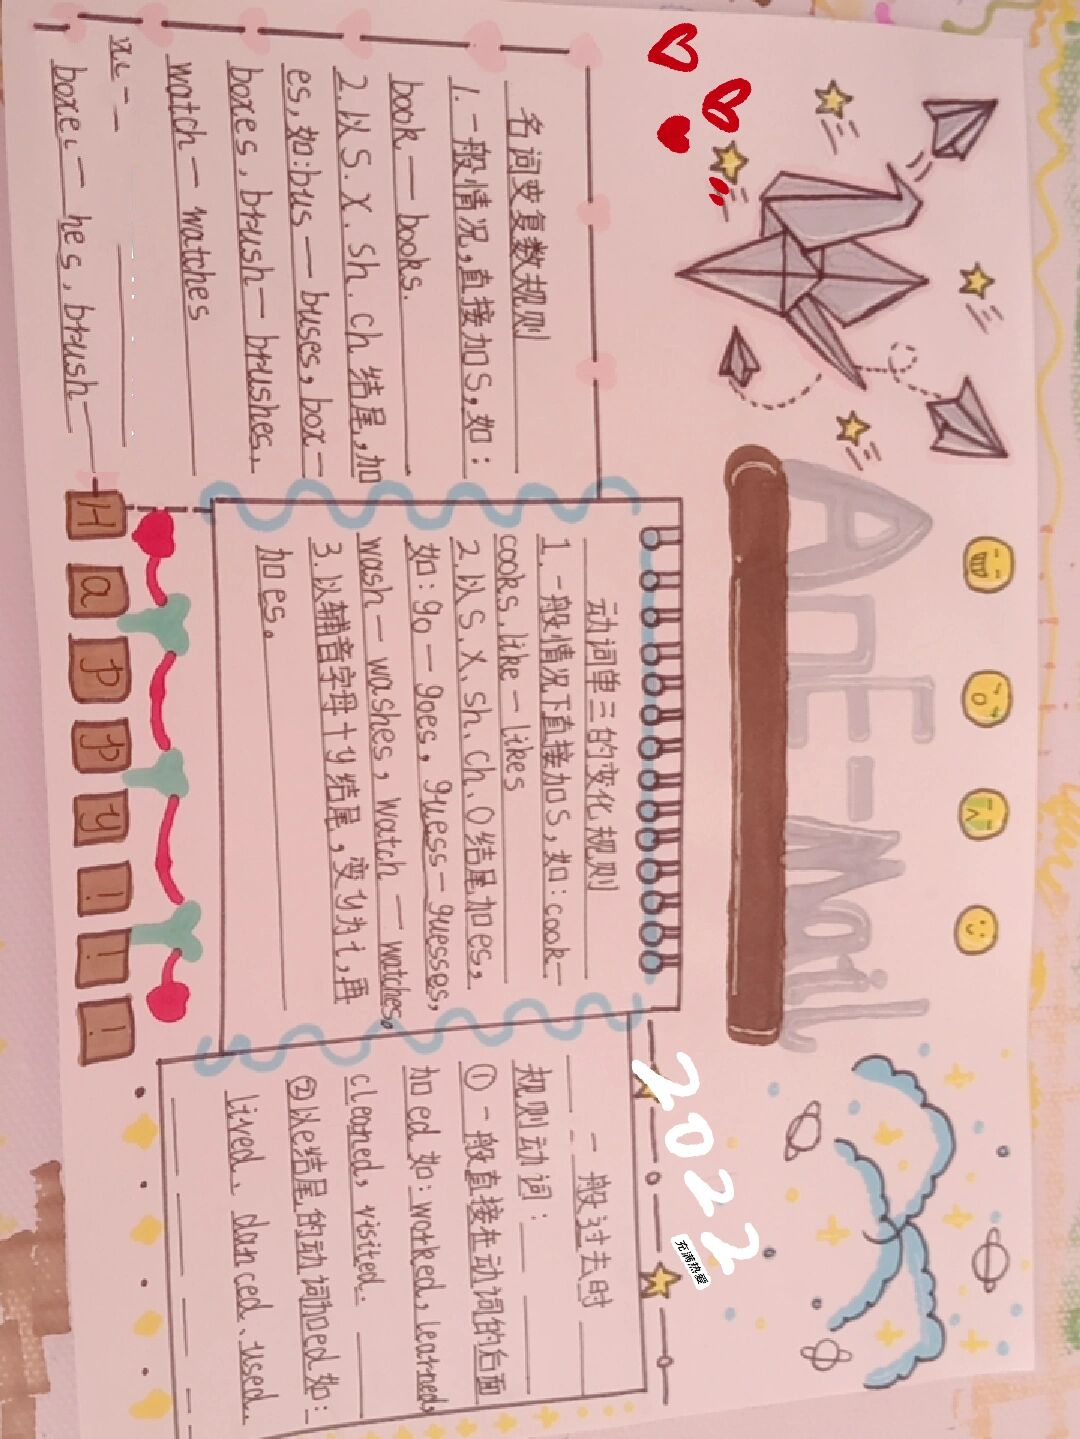 AnE-mail
2022
充满热爱
名词变复数规则
1.一般情况,直接加s,如:
book—books.
2.以s.x.sh.ch.结尾,加
es,如:bus—buses,box—
boxes,brush—brushes,
watch—watches
hes,brush—
动词单三的变化规则
1.一般情况下直接加s,如:cook—
cooks.like—likes
2.以s.x.sh.ch.o结尾加es,
如:go—goes,guess—guesses,
wash—washes,watch—watches。
3.以辅音字母+y结尾,变y为i,再
加es。
一般过去时
规则动词:
①一般直接在动词的后面
加ed如:worked,learned,
cleaned,visited.
②以e结尾的动词加ed如:
lived、danced、used.
Happy!!!